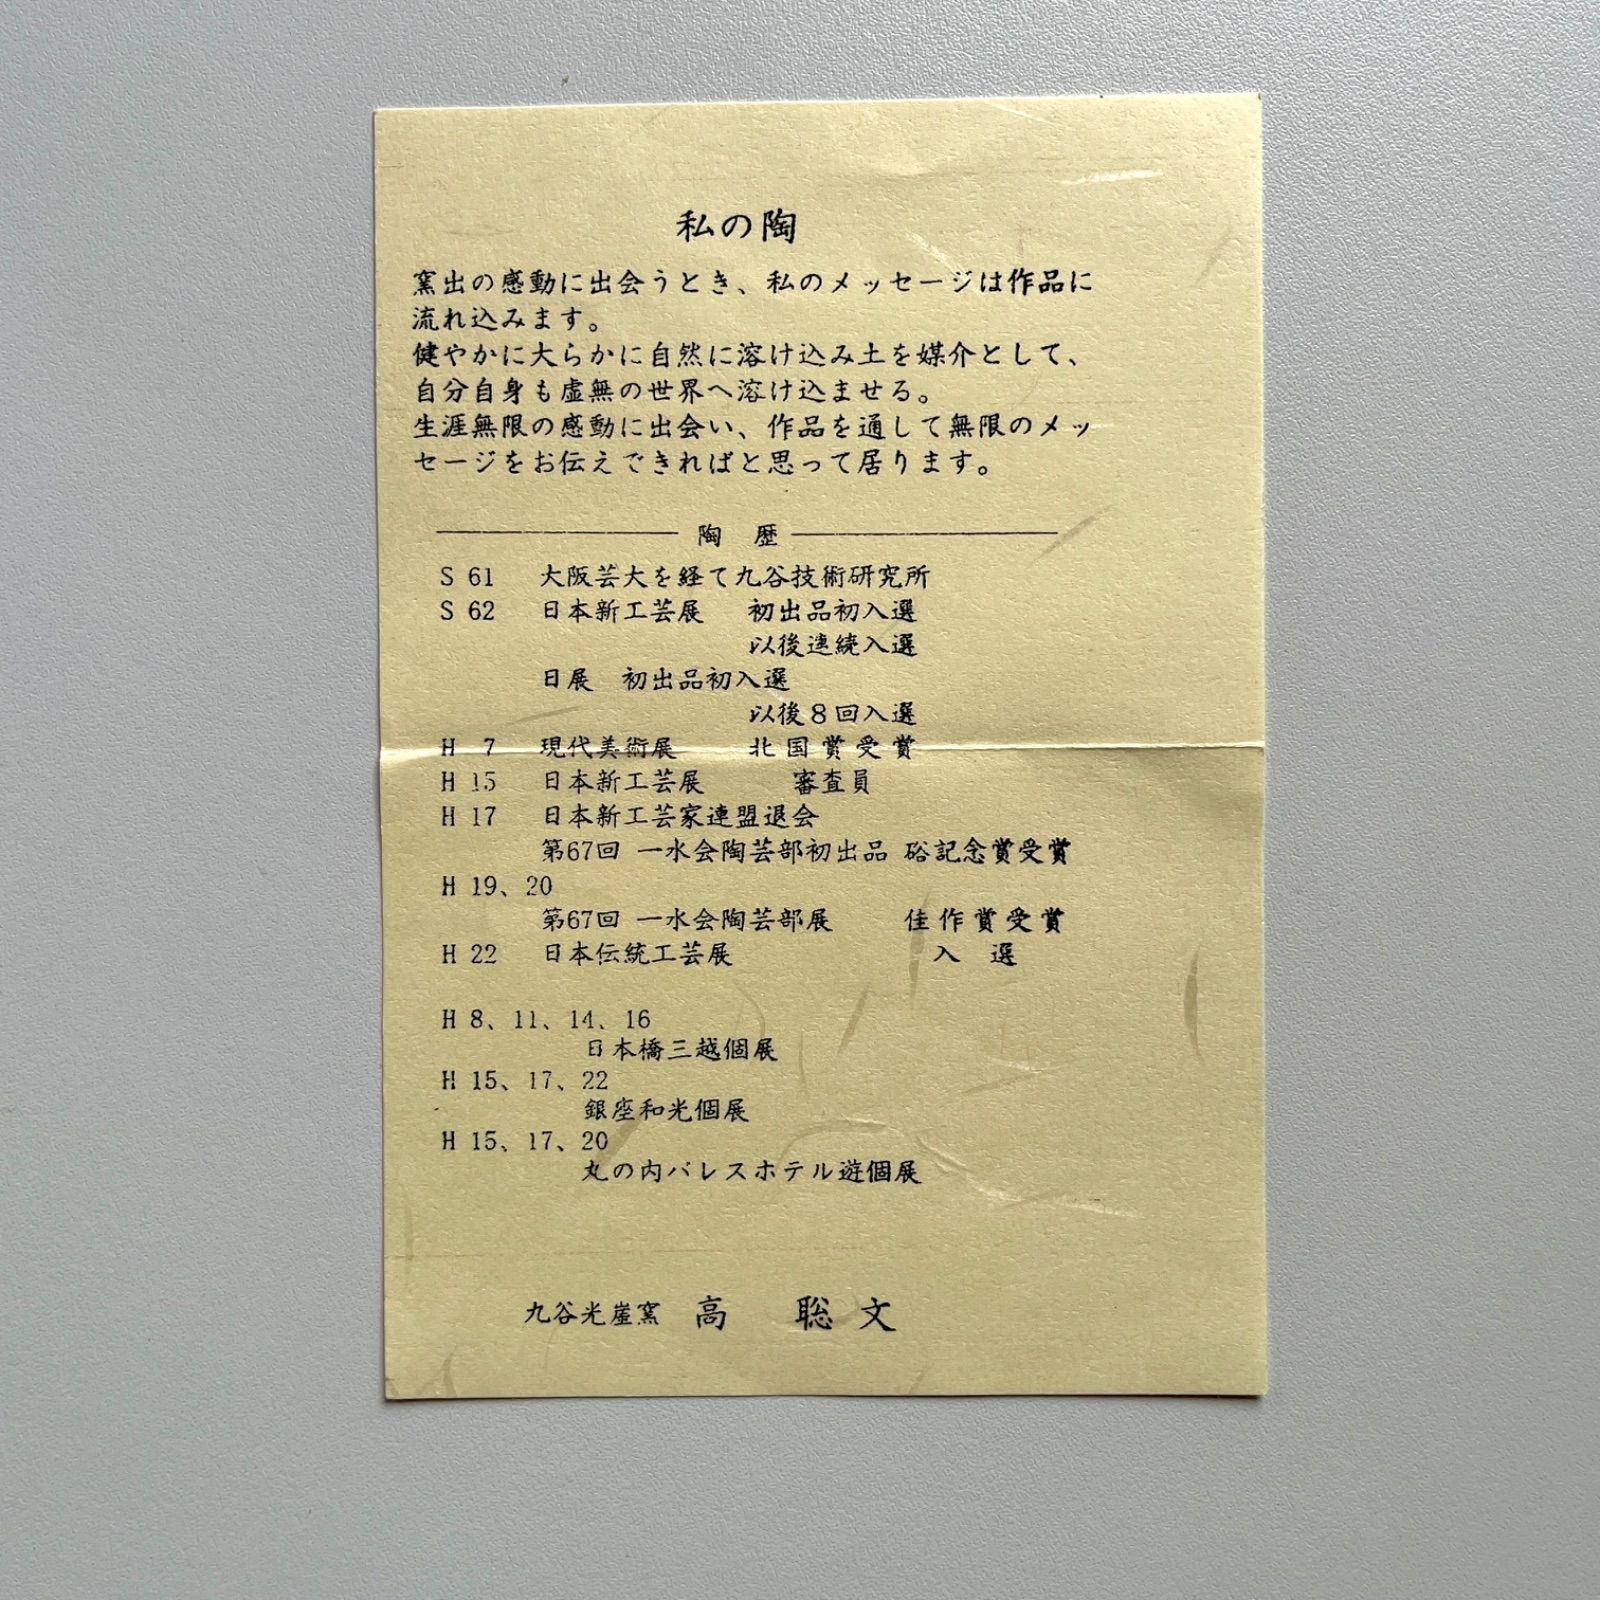 私の陶
窯出の感動に出会うとき、私のメッセージは作品に
流れ込みます。
健やかに大らかに自然に溶け込み土を媒介として、
自分自身も虚無の世界へ溶け込ませる。
生涯無限の感動に出会い、作品を通して無限のメッ
セージをお伝えできればと思って居ります。
陶 歴
S 61 大阪芸大を経て九谷技術研究所
S 62 日本新工芸展 初出品初入選
以後連続入選
日展 初出品初入選
以後8回入選
H 7 現代美術展 北国賞受賞
H 15 日本新工芸展 審査員
H 17 日本新工芸家連盟退会
第67回 一水会陶芸部初出品 硲記念賞受賞
H 19、20
第67回 一水会陶芸部展 佳作賞受賞
H 22 日本伝統工芸展 入 選
H 8、11、14、16
日本橋三越個展
H 15、17、22
銀座和光個展
H 15、17、20
丸の内パレスホテル遊個展
九谷光崖窯 高 聡文